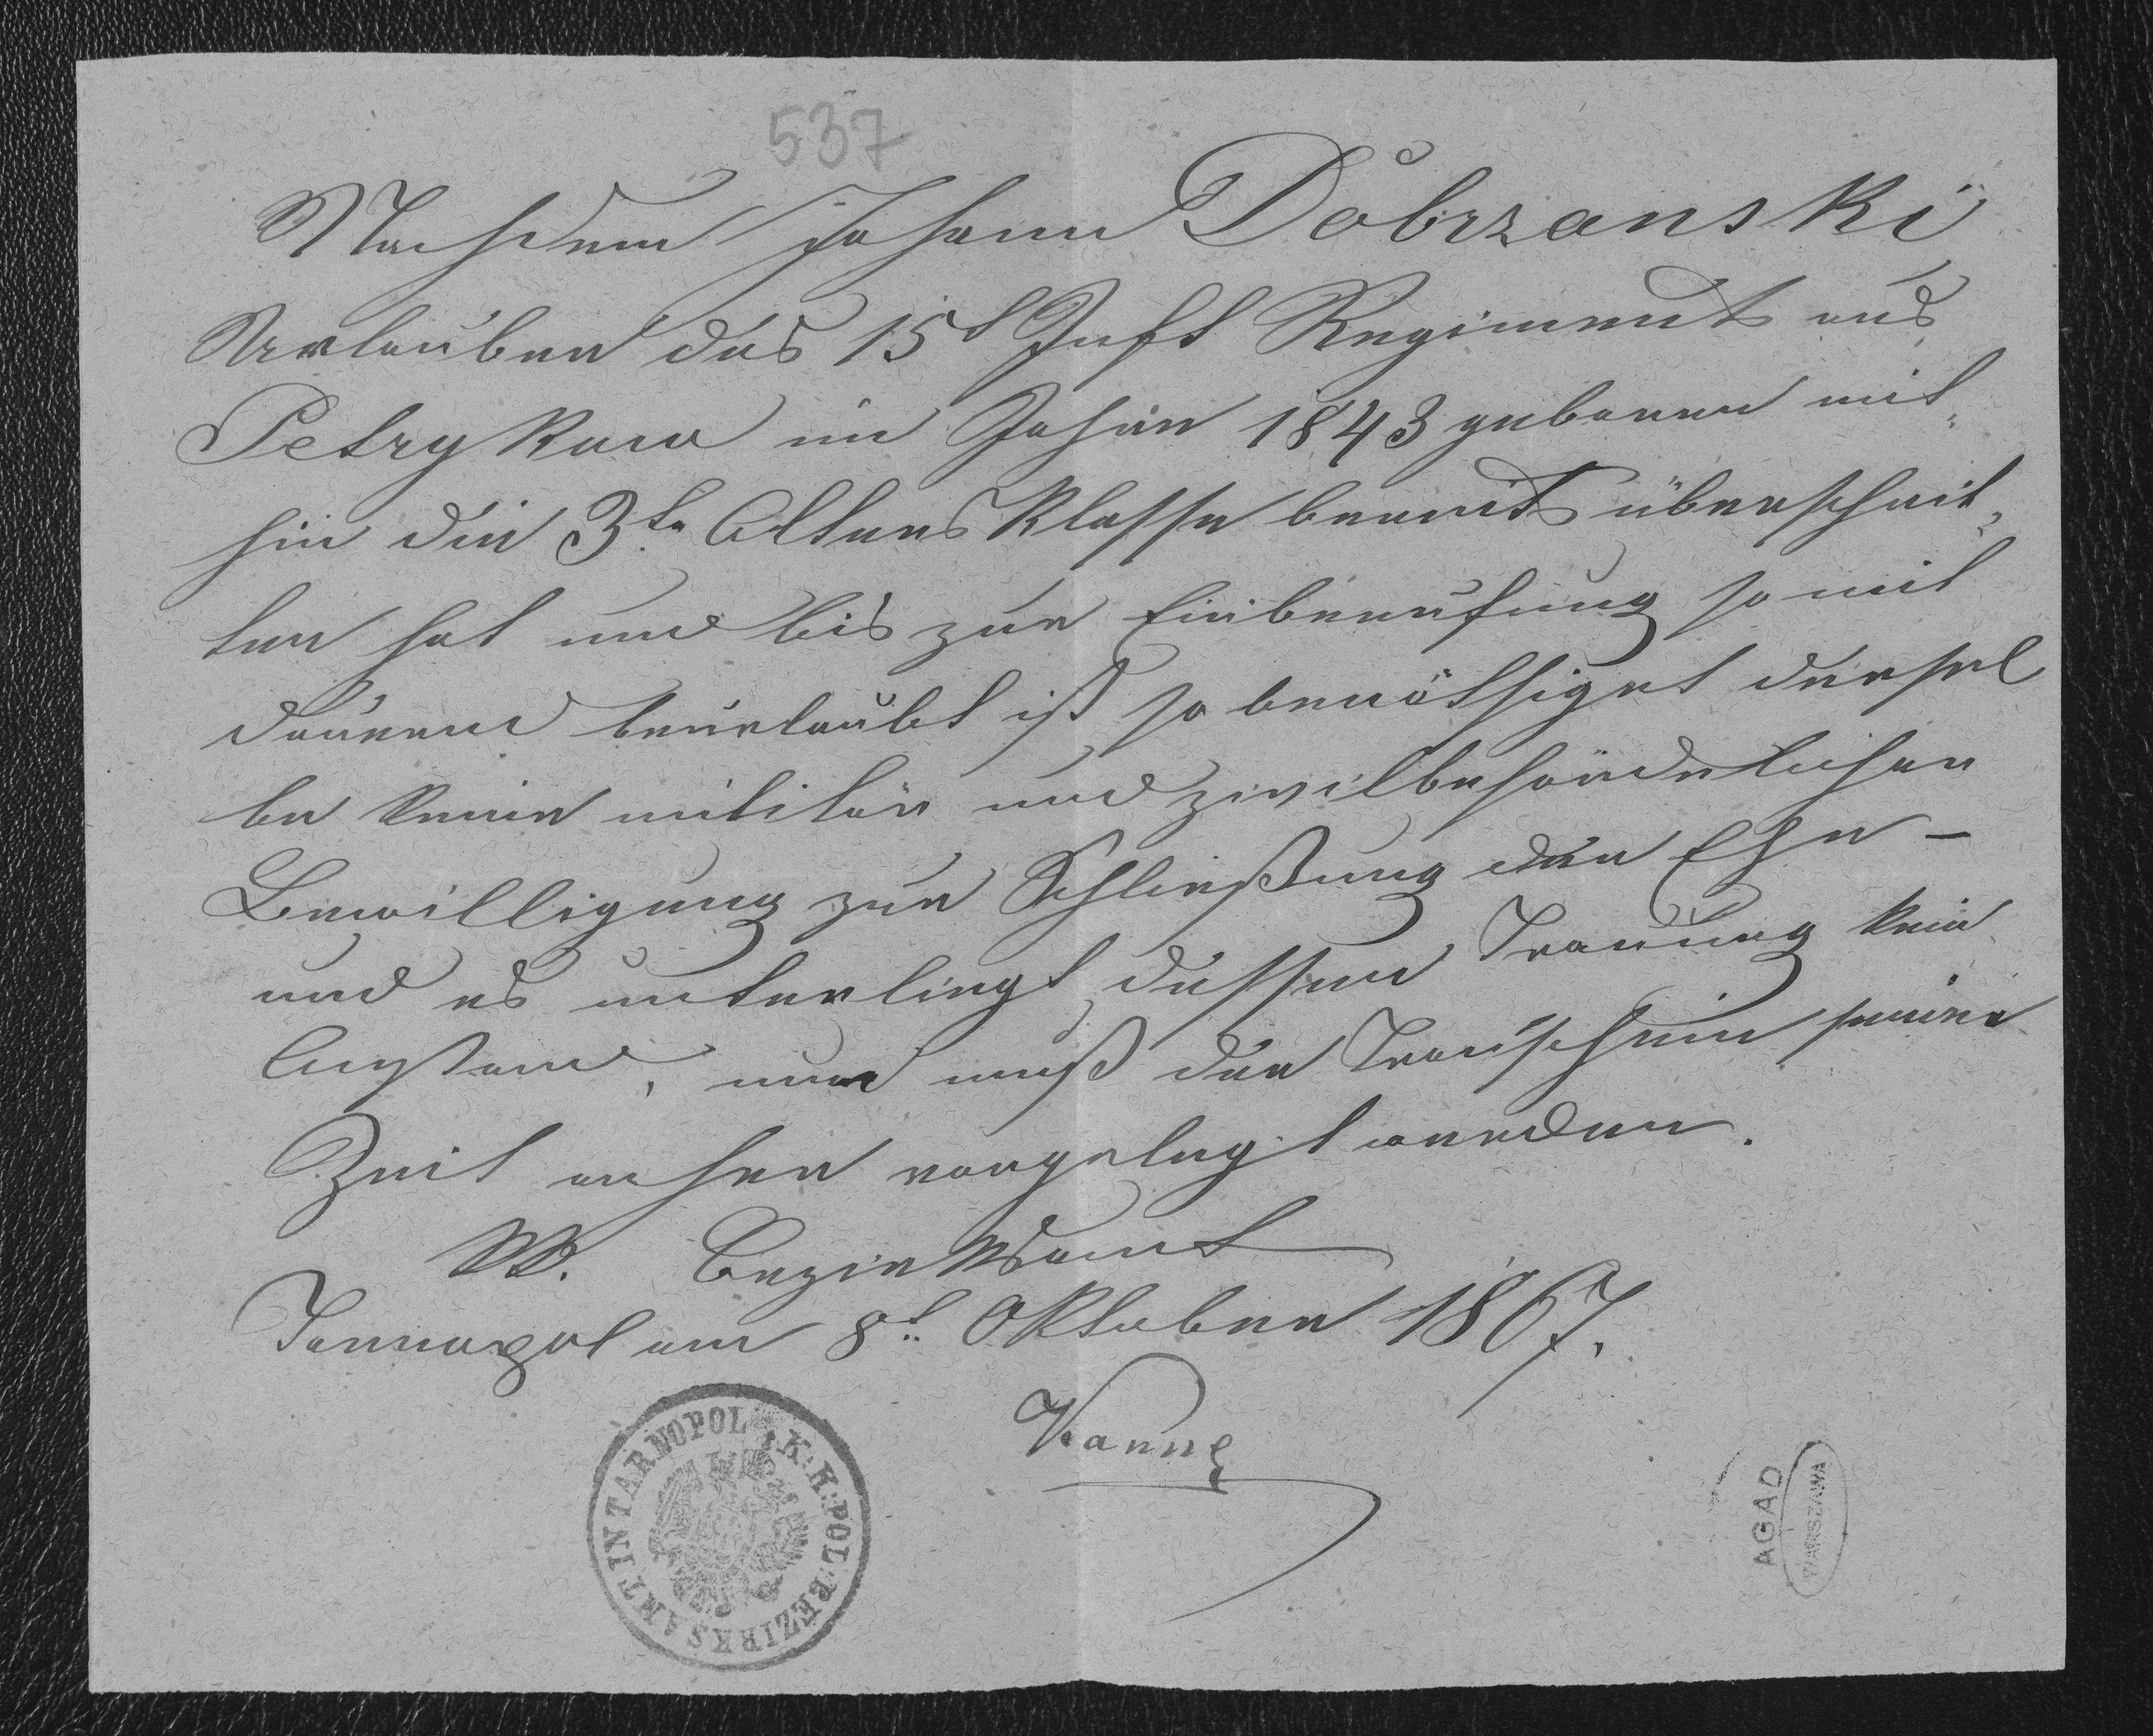 537
Nachdem Johann Dobrzanski
Urlauber des 15t Inft Regiments aus
Petrykow im Jahre 1843 geboren mit„
hin die 3te Altersklasse bereits überschrit„
ten hat und bis zur Einberufung somit
dauernd beurlaubt ist so benöthiget dersel
be keine militär und zivilbehördlichen
Bewilligung zur Schließung der Ehe –
und es unterliegt dessen Trauung kein
Anstand, und muß der Trauschein seiner
Zeit anher vorgelegt werden.
Bezirksamt
Tarnopol am 8t Oktober 1867.
Kanne
K: K: POL: BEZIRKSAMT IN TARNOPOL
AGAD
WARSZAWA